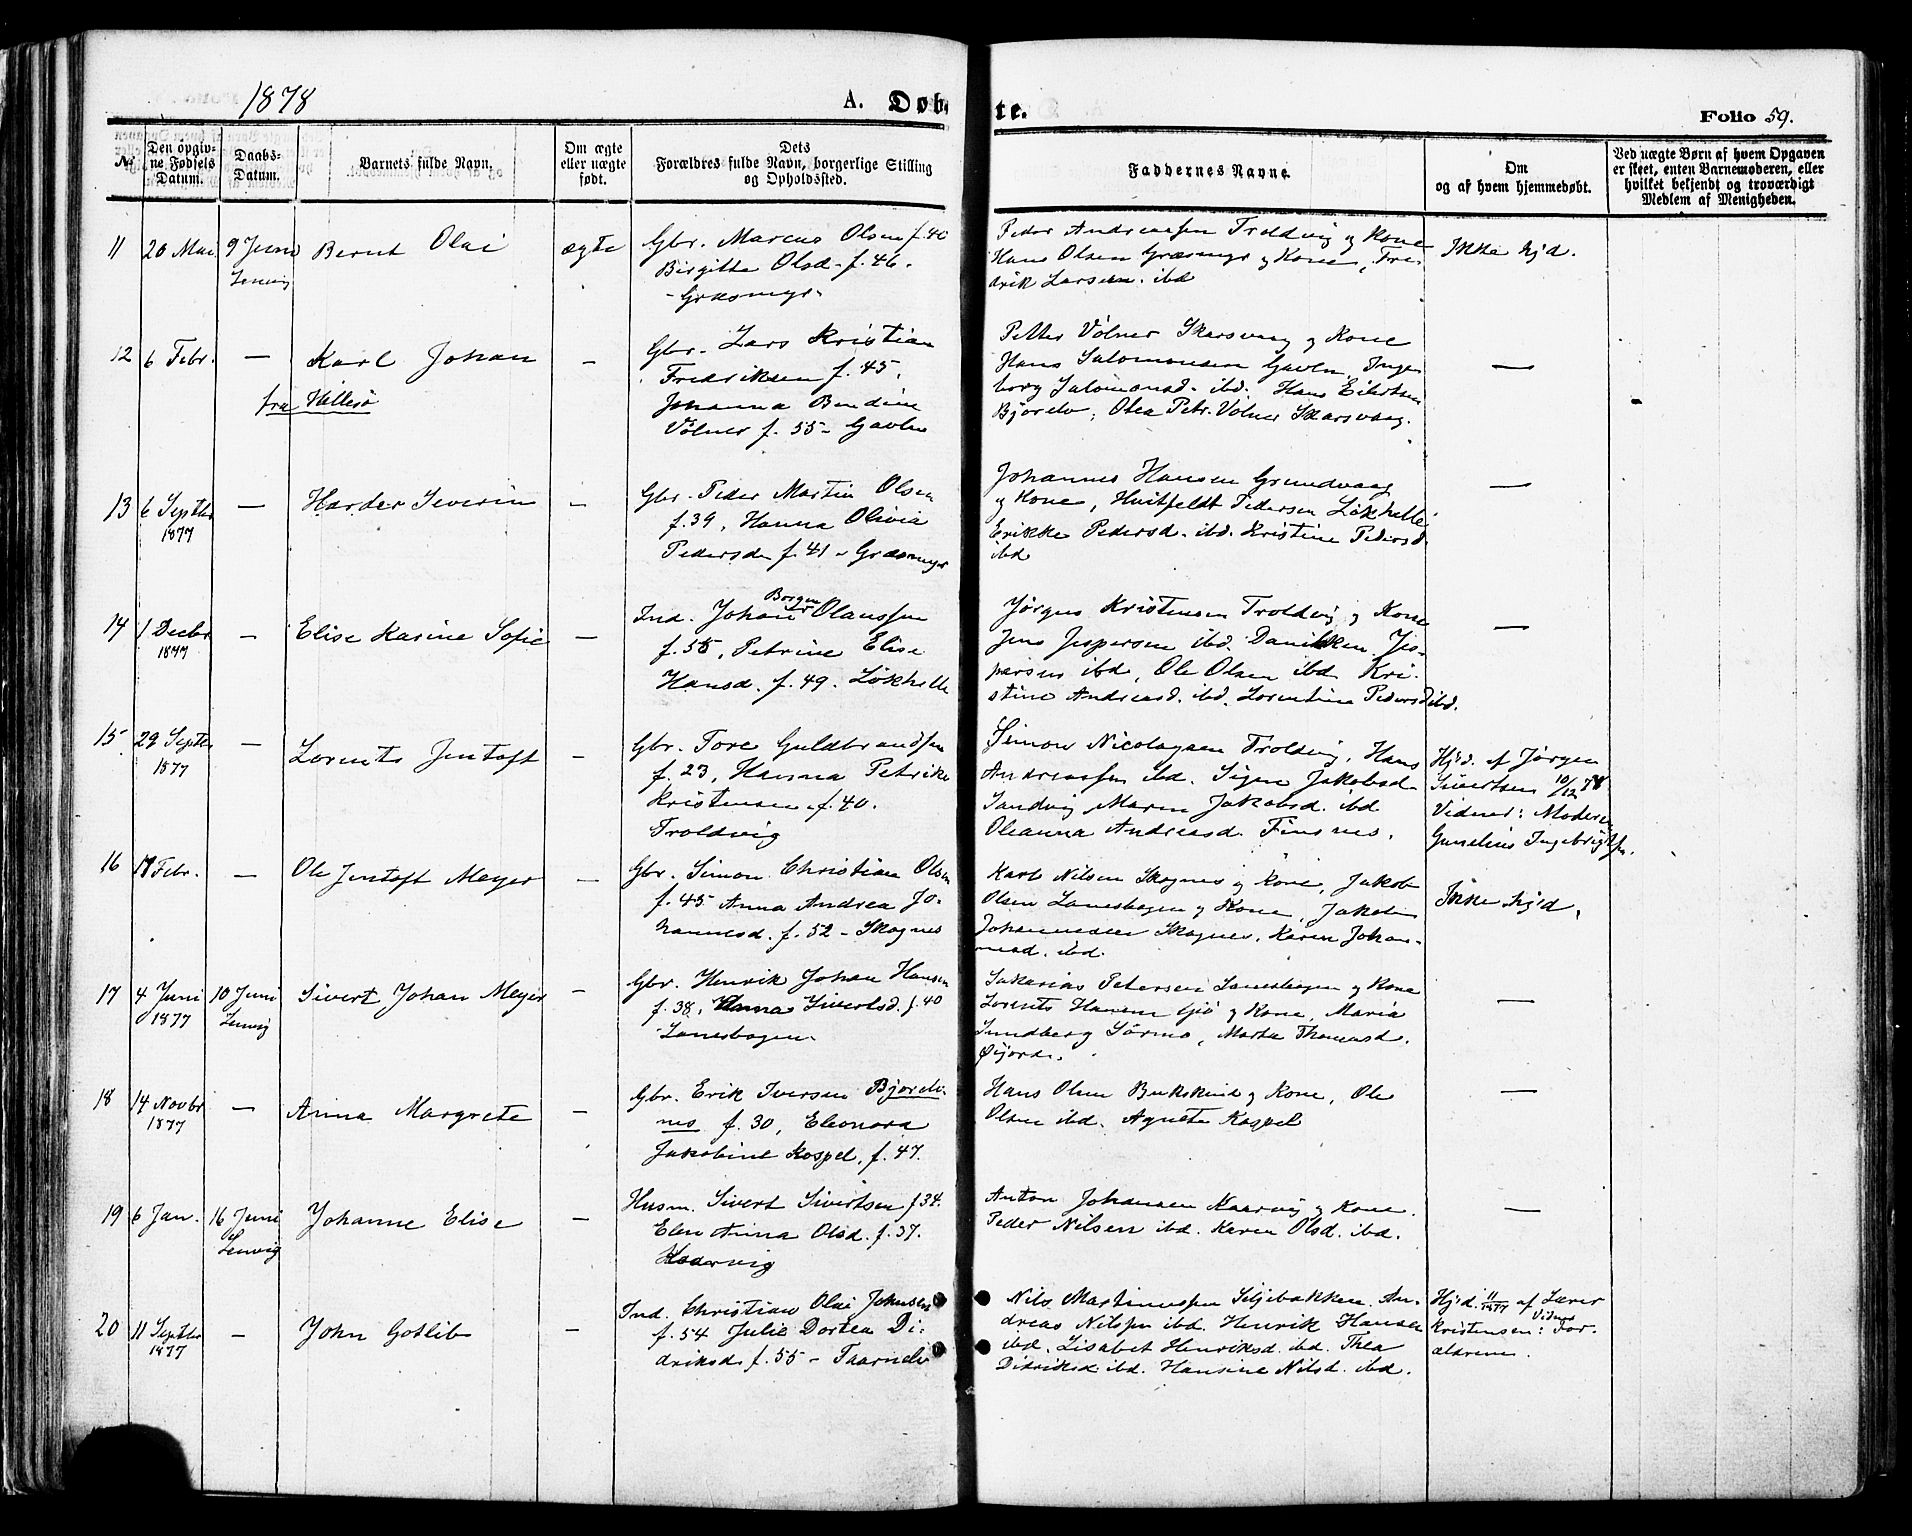 1878
A. Døb-
te.
Folio 59.
№
Den opgiv-
ne Fødsels
Datum.
Daabs-
Datum.
Barnets fulde Navn.
Om ægte
eller uægte
født.
Dets
Forældres fulde Navn, borgerlige Stilling
og Opholdssted.
Faddernes Navne.
Om
og af hvem hjemmedøbt.
Ved uægte Børn af hvem Opgaven
er skeet, enten Barnemoderen, eller
hvilket bekjendt og troværdigt
Medlem af Menigheden.
11
20 Mai
9 Juni
Lenvig
Bernt Olai
ægte
Gbr. Marcus Olsen f. 40
Birgitte Olsd. f. 46.
Græsmyr.
Peder Andreassen Troldvig og Kone
Hans Olsen Græsmyr og Kone, Fre-
drik Larsen. ibd
Ikke hjd.
12
6 Febr.
—
Karl Johan
fra Hillesø
—
Gbr. Lars Kristian
Fredriksen f. 45,
Johanna Bendine
Völner f. 55 - Gavlen
Petter Völner Skarsvaag og Kone
Hans Salomonsen Gavln, Inge
borg Salomonsd. ibd. Hans Eilertsen
Bjorelv, Olea Petr. Völner Skarsvaag.
—
13
6 Septbr
1877
—
Harder Severin
—
Gbr. Peder Martin Olsen
f. 39, Hanna Olivia
Pedersd. f. 41 - Græsmyr
Johannes Hansen Grundvaag
og Kone, Hvitfeldt Pedersen Løkhelle
Erikke Pedersd. ibd. Kristine Pedersd.
ibd
—
14
1 Decbr
1877
—
Elise Karine Sofie
—
Borgen
Ind. Johan Olaussen
f. 55, Petrine Elise
Hansd. f. 49. Løkhelle
Jørgen Kristensen Troldvig og Kone
Jens Jespersen ibd. Danikken Jes-
persen ibd, Ole Olsen ibd Kri-
stine Andreasd. ibd. Lorentine Pedersd ibd.
—
15
29 Septbr
1877
—
Lorents Jentoft
—
Gbr. Tore Guldbrandsen
f. 23, Hanna Petrike
Kristensen f. 40.
Troldvig
Simon Nicolaysen Troldvig, Hans
Andreassen ibd. Sigen Jakobsd
Sandvig Maren Jakobsd. ibd
Oleanna Andreasd. Finsnes.
Hjd. af Jørgen
Sivertsen 10/12 78
Vidner: Moderen
Gunelius Ingebrigtsen.
16
Febr.
—
Ole Jentoft Meyer
—
Gbr. Simon Christian Olsen
f. 45 Anna Andrea Jo-
hannesd. f. 52 - Skognes
Karl Nilsen Skognes og Kone, Jakob
Olsen Lanesbogen og Kone, Jakob
Johannessen Skognes, Karen Johan-
nesd. ibd.
Ikke hjd.
17
4 Juni
1877
10 Juni
Lenvig
Sivert Johan Meyer
—
Gbr. Henrik Johan Hansen
f. 38, Anna Sivertsd. f. 40
Lanesbogen.
Sakarias Petersen Lanesbogen og Kone
Lorents Hansen Gjö og Kone, Maria
Sundberg Sørmo, Marta Thomasd.
Øijord.
—
18
14 Novbr
1877
—
Anna Margrete
—
Gbr. Erik Iversen Bjorelv-
nes f. 30, Eleonora
Jakobine Kospel, f. 47.
Hans Olsen Bukskind og Kone, Ole
Olsen ibd. Agneta Kospel
—
19
6 Jan.
16 Juni
Lenvig
Johanne Elise
—
Husm. Sivert Sivertsen f 34.
Elen Anna Olsd. f. 37.
Kaarvig
Anton Johansen Kaarvig og Kone.
Peder Nilsen ibd. Karen Olsd. ibd.
—
20
11 Septbr
1877
—
John Gotlib
—
Ind. Christian Olai Johnsen
f. 54 Julie Dortea Di-
driksd. f. 55 - Taarnelv
Nils Martinussen Seljebakken. An-
dreas Nilssen ibd. Henrik Hansen
ibd, Lisabet Henriksd. ibd. Thea
Didriksd ibd. Hansine Nilsd. ibd.
Hjd. 11/1877 af Lærer
Kristensen: Vidner For-
ældrene.